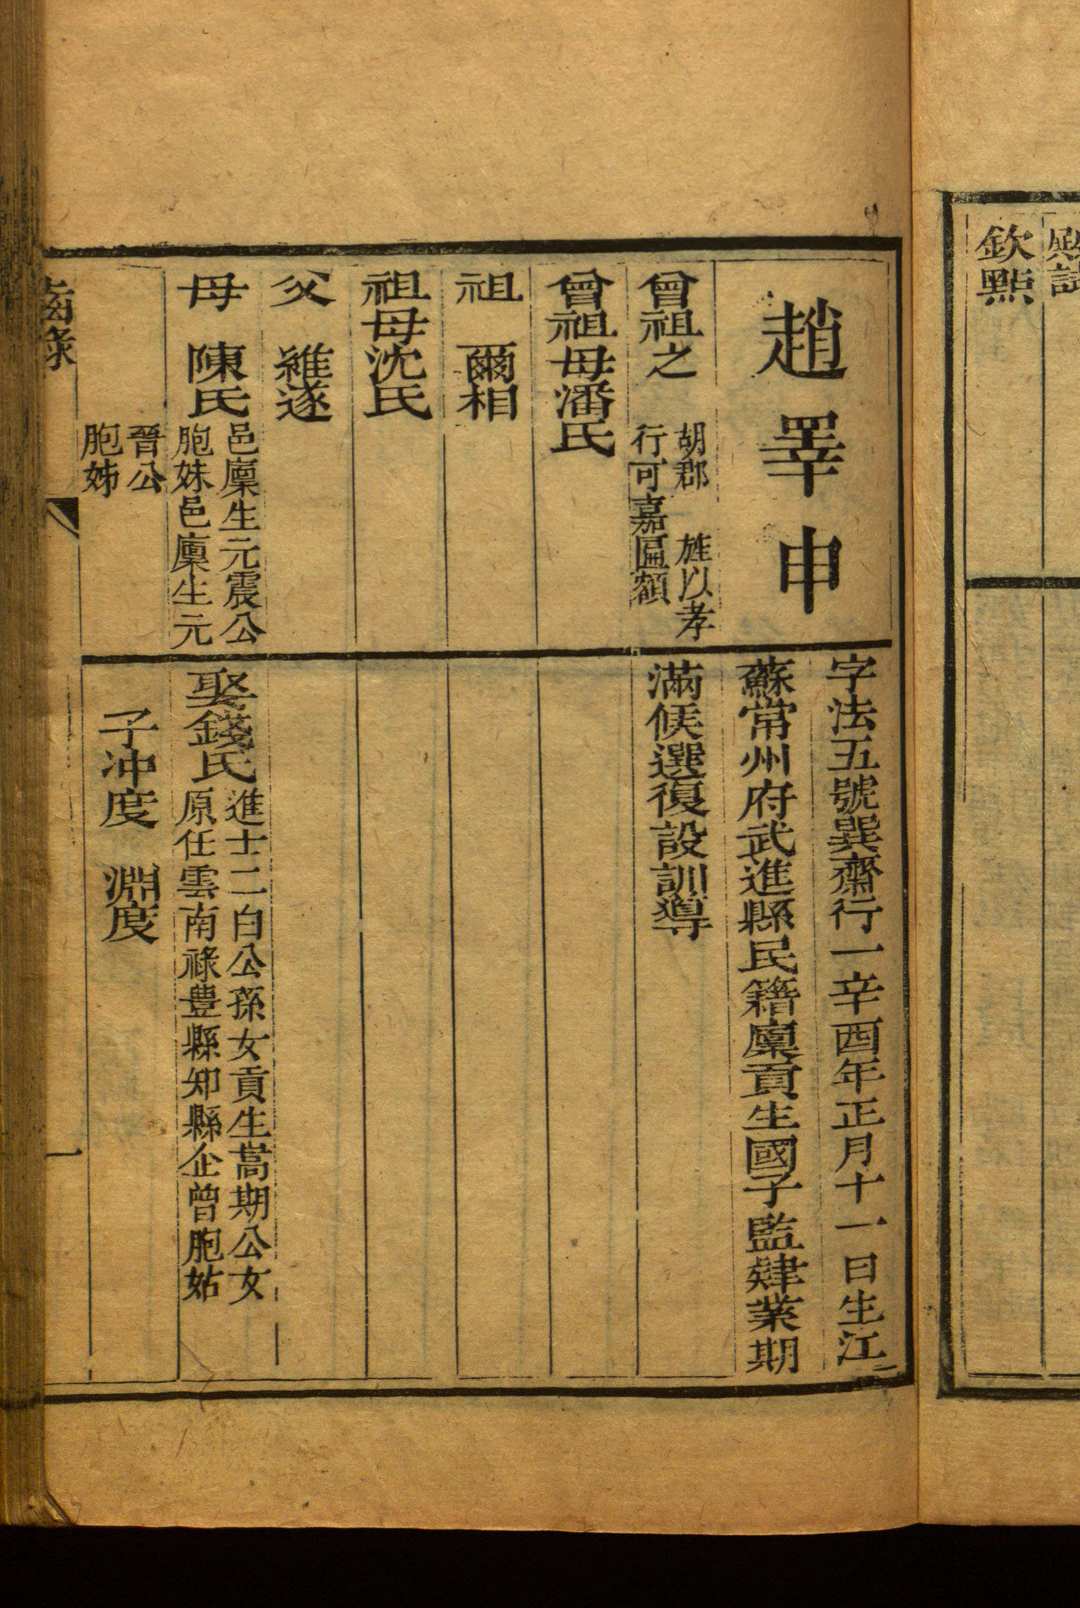 欽點
趙睪申
曾祖之
胡郡 旌以孝
行可嘉匾額
曾祖母潘氏
祖 爾相
祖母沈氏
父 維遂
母 陳氏
邑廩生元震公
胞妹邑廩生元
晉公
胞姊
字法五號巽齋行一辛酉年正月十一日生江
蘇常州府武進縣民籍廩貢生國子監肄業期
滿候選復設訓導
娶錢氏
進士二白公孫女貢生嵩期公女
原任雲南祿豊縣知縣企曾胞姑
子冲度 淵度
齒錄
一